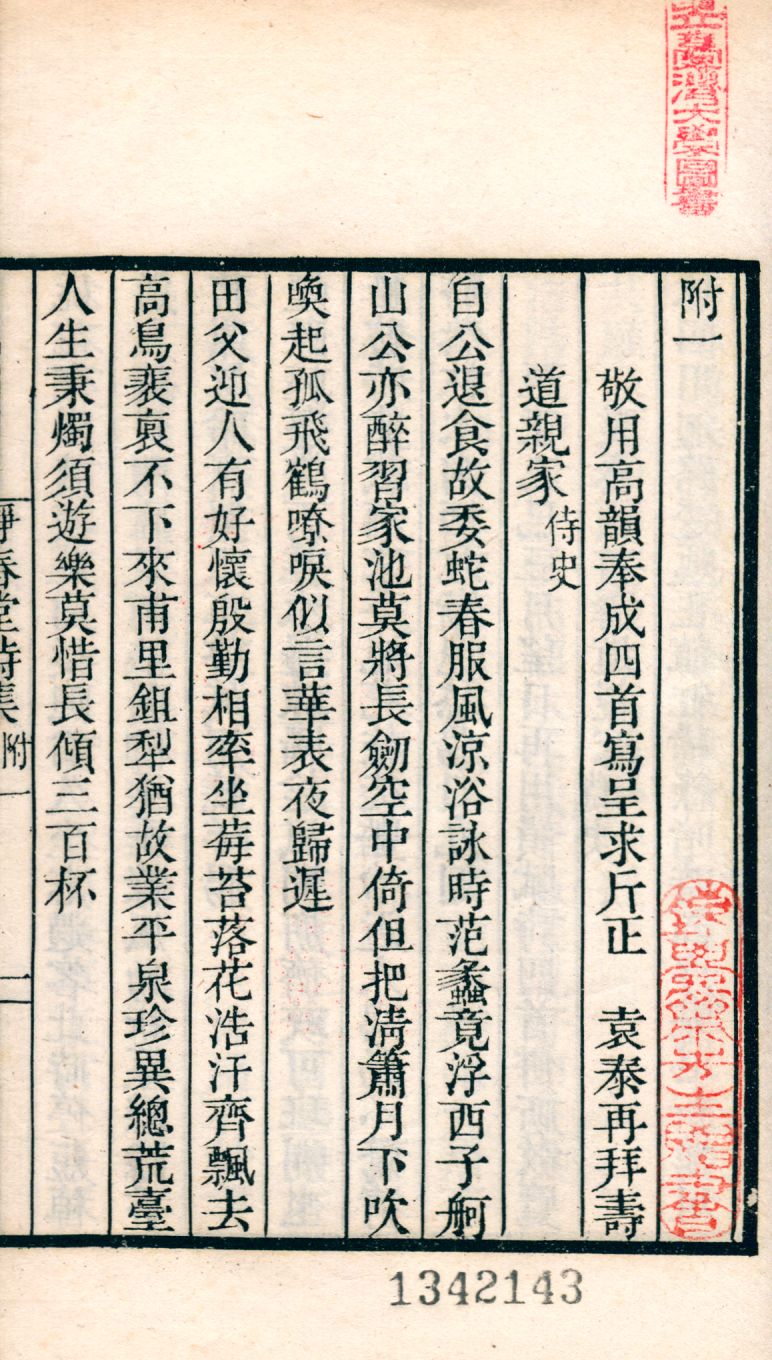 附一
敬用高韻奉成四首寫呈求斤正　袁泰再拜壽
道親家侍史
自公退食故委蛇春服風涼浴詠時范蠡竟浮西子舸
山公亦醉習家池莫將長劒空中倚但把淸簫月下吹
喚起孤飛鶴嘹唳似言華表夜歸遲
田父迎人有好懷殷勤相率坐莓苔落花浩汗齊飄去
高鳥裵裒不下來甫里鉏犁猶故業平泉珍異總荒臺
人生秉燭須遊樂莫惜長傾三百杯
靜春堂詩集　附一　一
1342143